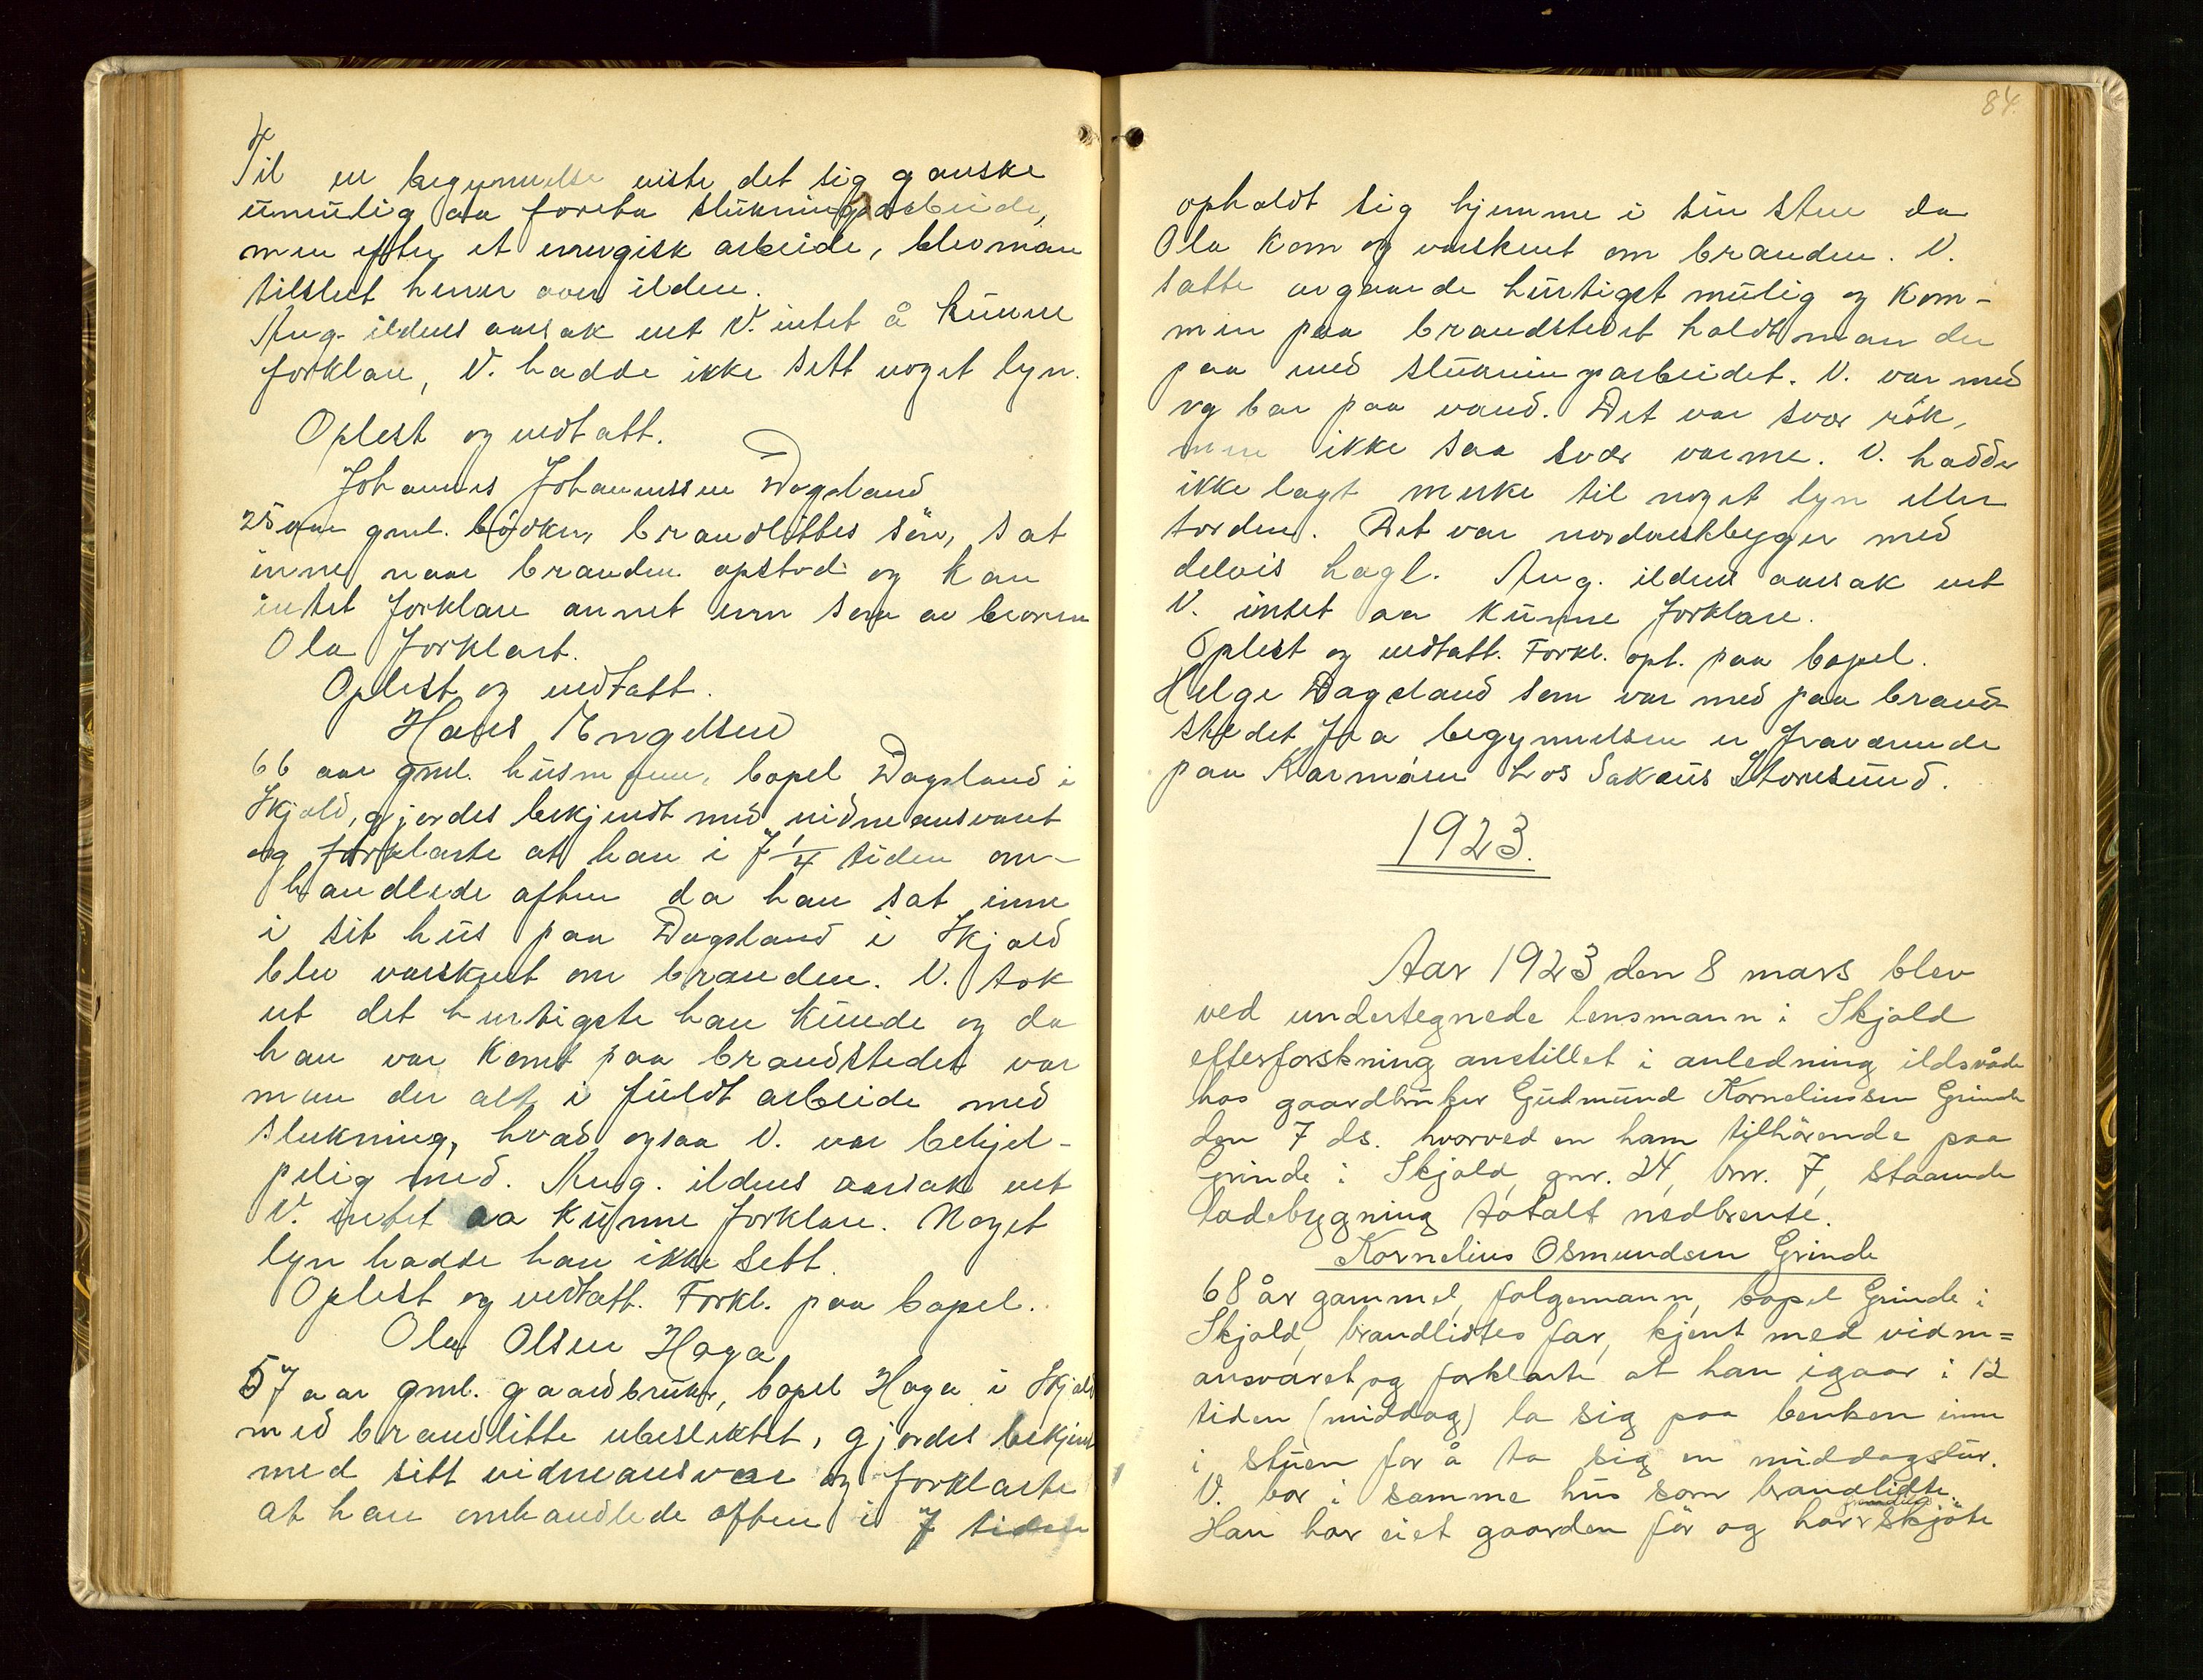 Til en begynnelse viste det sig ganske
umulig aa foreta slukningsarbeide,
men efter et energisk arbeide, blev man
tilslut herrer over ilden.
Ang. ildens aarsak vet V. intet å kunne
forklare, V. hadde ikke sett noget lyn.
Oplest og vedtatt.
Johannes Johannessen Dagsland
25 aar gml. bødker, brandlittes søn, sat
inne naar branden opstod og kan
intet forklare annet enn som av broren
Ola forklart.
Oplest og vedtatt.
Hans Engelsen
66 aar gml. husmann, bopel Dagsland i
Skjold, gjordes bekjendt med vidneansvaret
og forklarte at han i 7 1/4 tiden om-
handlede aften da han sat inne
i sit hus paa Dagsland i Skjold
blev varskuet om branden. V. tok
ut det hurtigste han kunde og da
han var komt paa brandstedet var
man der alt i fuldt arbeide med
slukning, hvad ogsaa V. var behjel-
pelig med. Ang. ildens aarsak vet
V. intet aa kunne forklare. Noget
lyn hadde han ikke sett.
Oplest og vedtatt. Forkl. paa bopel.
Ola Olsen Haga
57 aar gml. gaardbruker, bopel Haga i Skjold
med brandlitte ubeslektet, gjordes bekjent
med sitt vidneansvar og forklarte
at han omhandlede aften i 7 tiden
84.
opholdt sig hjemme i sin stue da
Ola kom og varskuet om branden. V.
satte avgaarde hurtigst mulig og kom-
men paa brandstedet holdt man der
paa med slukningsarbeidet. V. var med
og bar paa vand. Det var svær røk,
men ikke saa svær varme. V. hadde
ikke lagt merke til noget lyn eller
torden. Det var nordvestbyger med
delvis hagl. Ang. ildens aarsak vet
V. intet aa kunne forklare.
Oplest og vedtatt. Forkl. opt. paa bopel.
Helge Dagsland som var med paa brand-
stedet fra begynnelsen er fraværende
paa Karmøen hos Sakeus Storesund.
1923.
Aar 1923 den 8 mars blev
ved undertegnede lensmann i Skjold
efterforskning anstillet i anledning ildsvåde
hos gaardbruker Gudmund Korneliussen Grinde
den 7 ds. hvorved en ham tilhørende paa
Grinde i Skjold, gnr. 24, bnr. 7, staaende
ladebygning totalt nedbrente.
Kornelius Osmundsen Grinde
68 år gammel, folgemann, bopel Grinde i
Skjold, brandlidtes far, kjent med vidne=
ansvaret og forklarte at han igaar i 12
tiden (middag) la sig paa benken inne
i stuen for å ta sig en middagslur.
V. bor i samme hus som brandlidte.
Han har eiet gaarden før og har skjøte